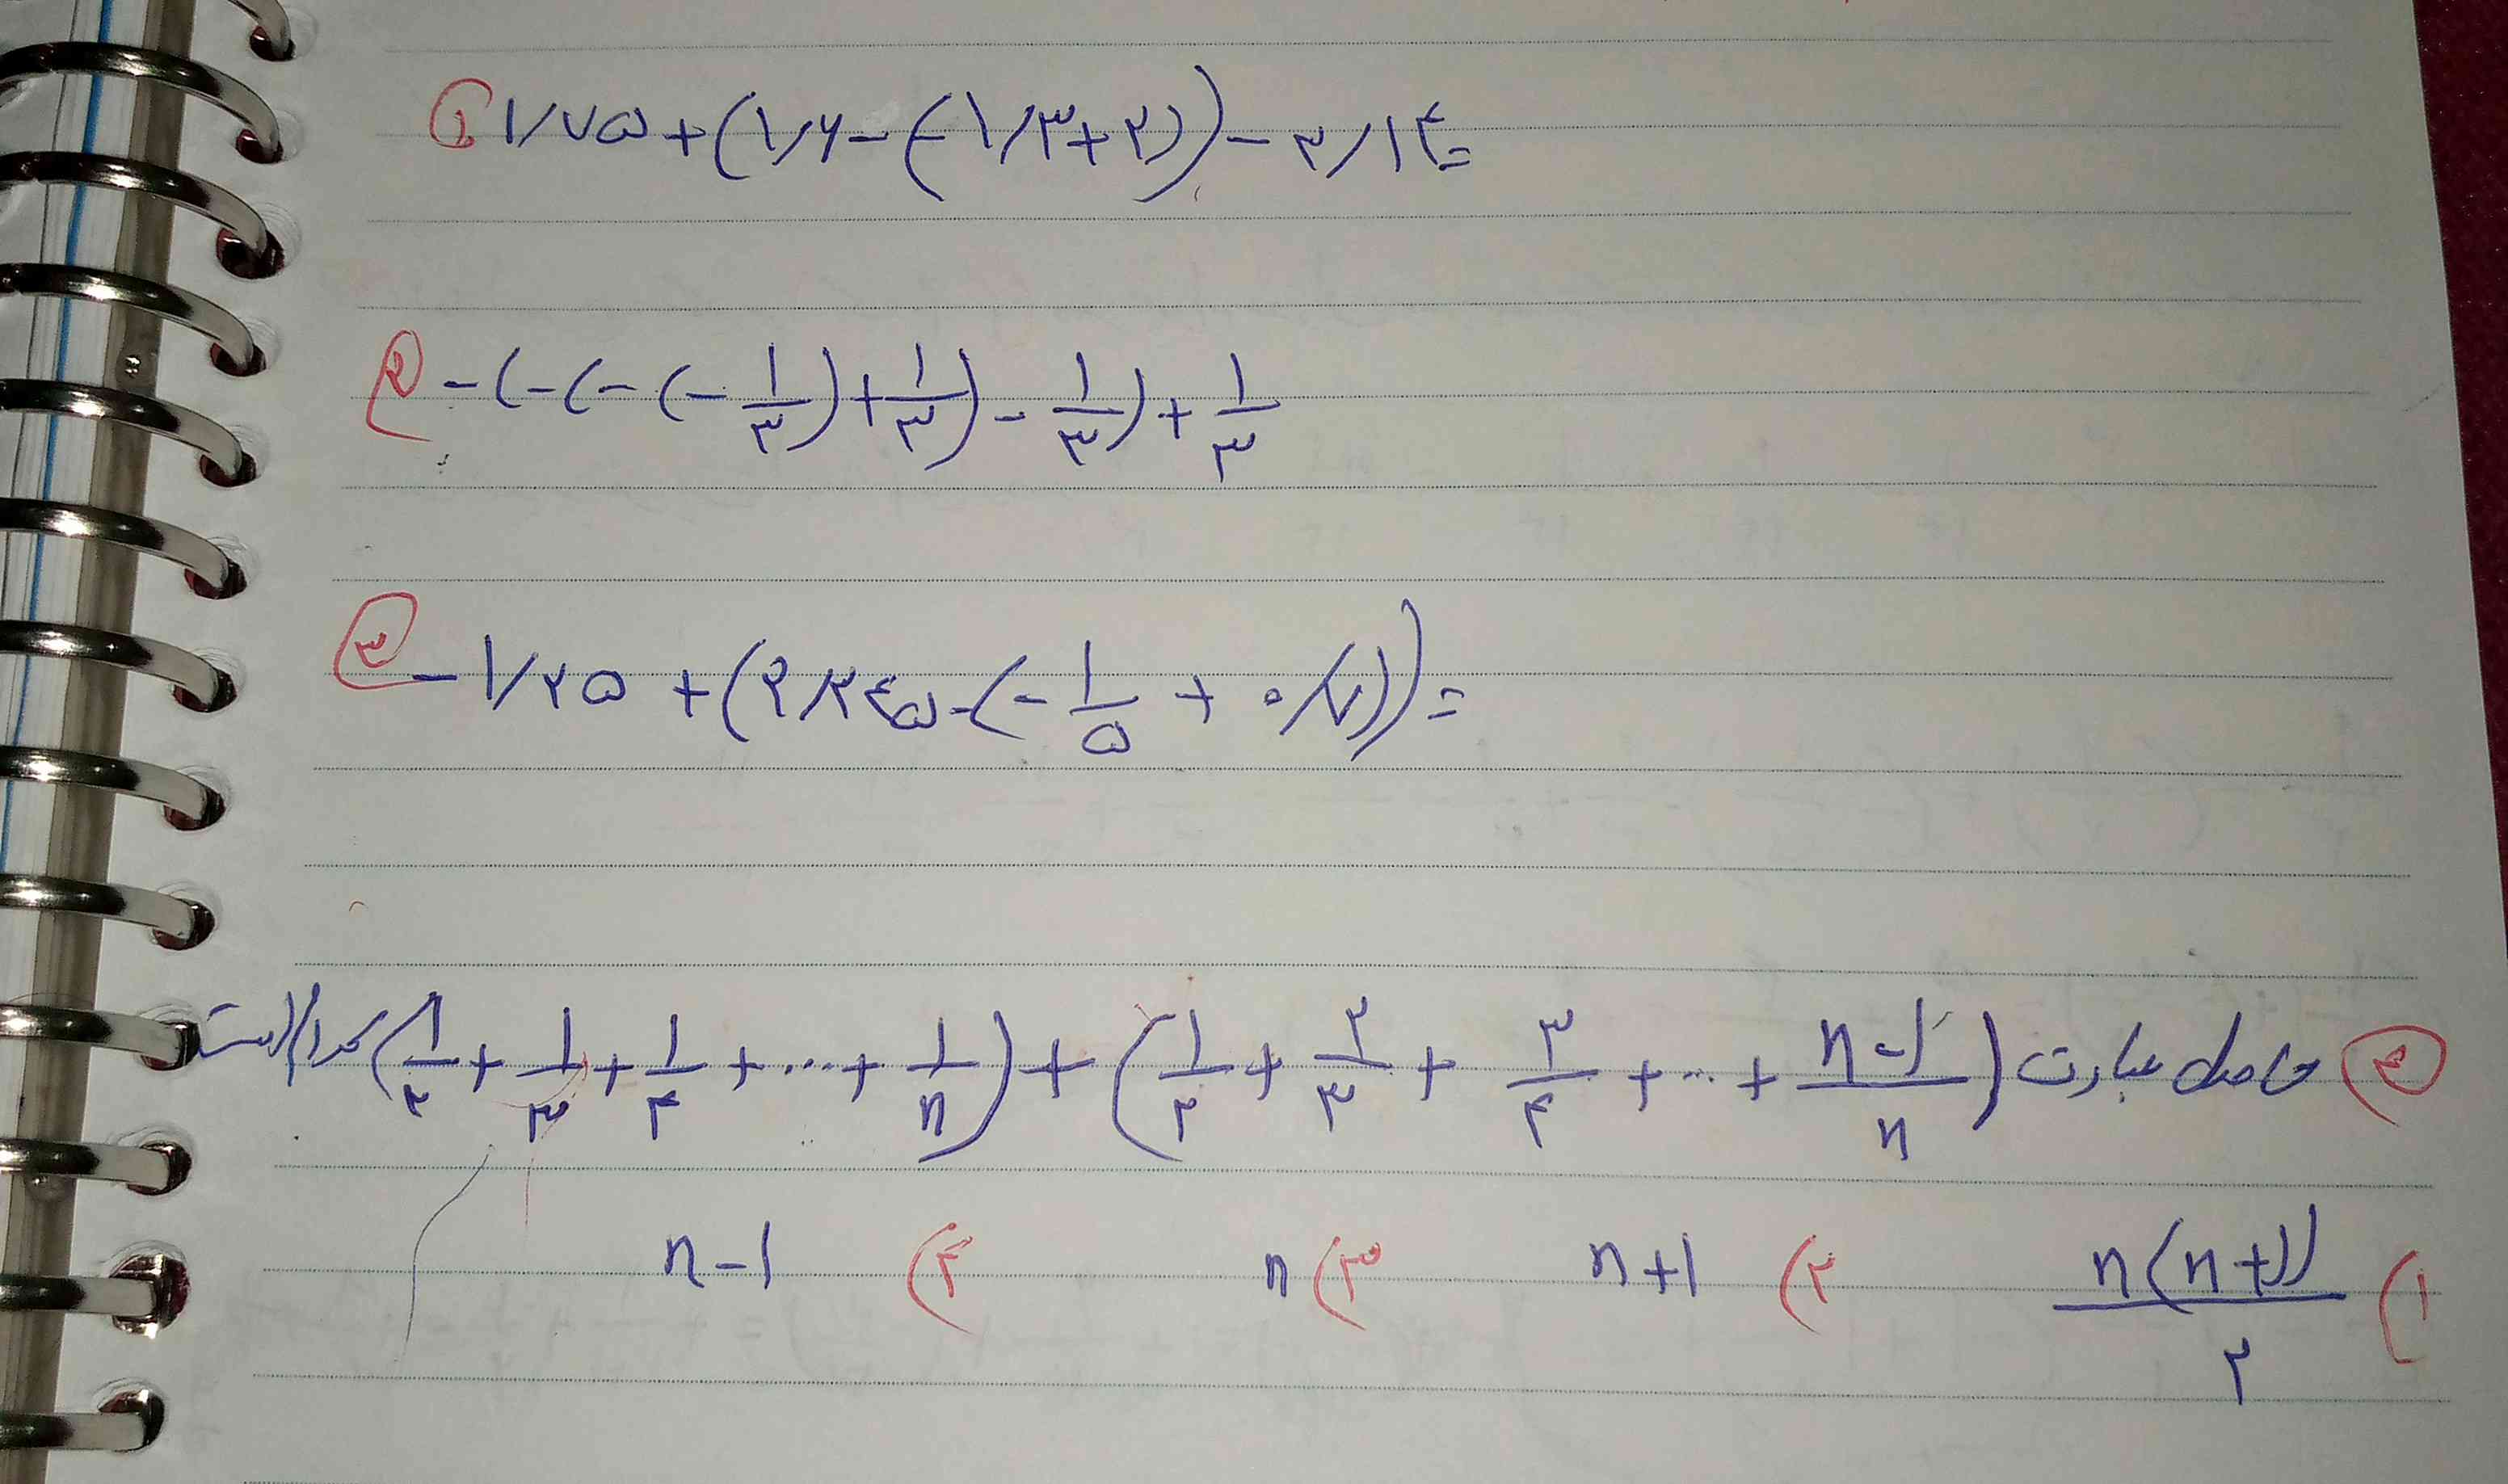 ۱ ۱/۷۵ + (۱/۶ - (-۱/۳ + ۲)) - ۳/۱۴ =
۲ - (-(- (- ۱/۳) + ۱/۳) - ۱/۳) + ۱/۳
۳ - ۱/۲۵ + (۲/۳۴۵ - (- ۱/۵ + ۰/۷)) =
۴ حاصل عبارت (۱/۲ + ۱/۳ + ۱/۴ + ... + ۱/n) + (۱/۲ + ۲/۳ + ۳/۴ + ... + n-۱/n) کدام است
۱) n(n+۱)/۲ ۲) n+۱ ۳) n ۴) n-۱